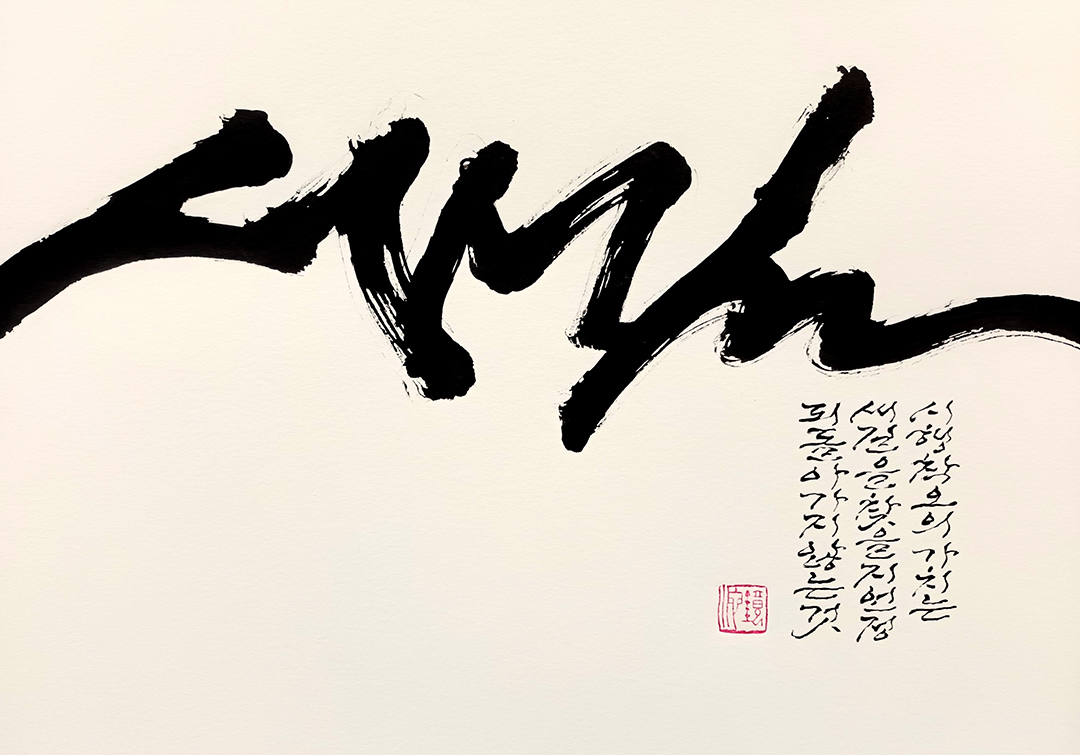 새길
시행착오의 가치는
새길을 찾을지언정
되돌아가지 않는 것